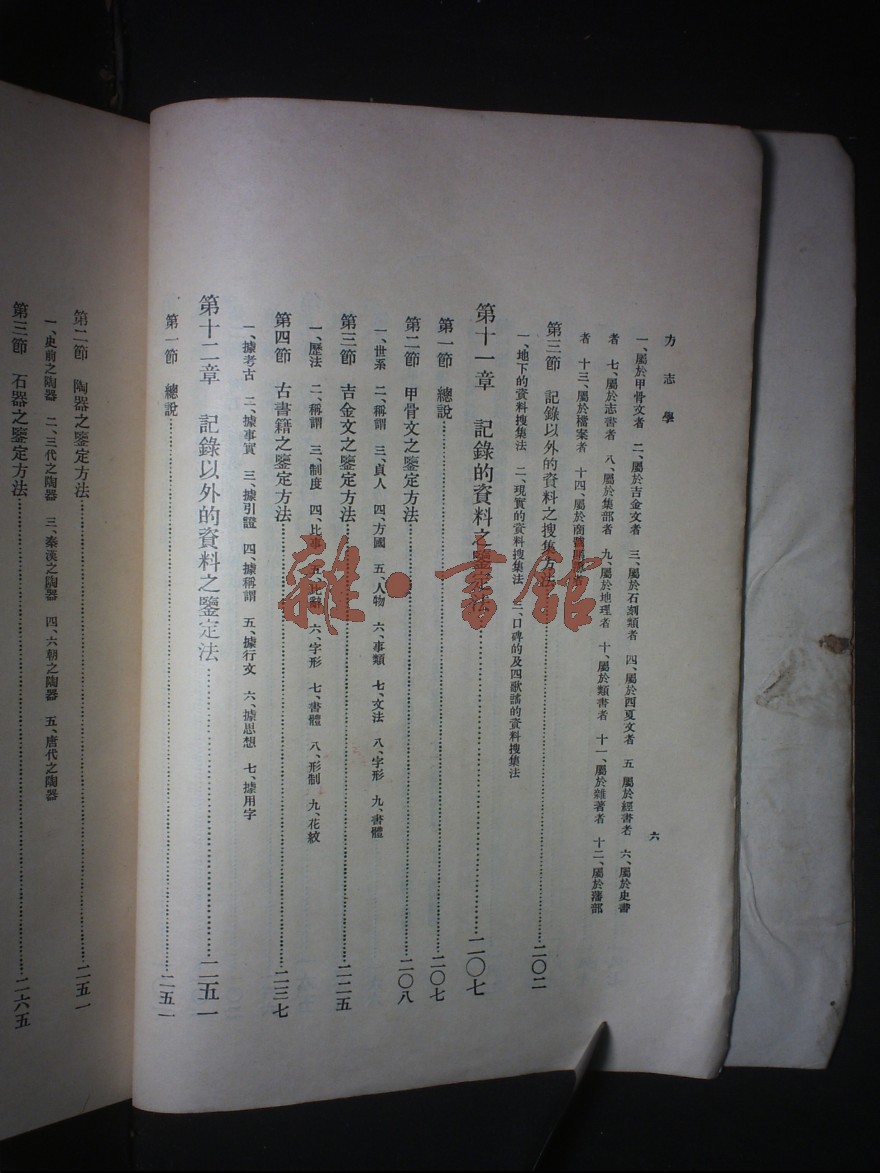 方志學
六
一、屬於甲骨文者　二、屬於吉金文者　三、屬於石刻類者　四、屬於西夏文者　五、屬於經書者　六、屬於史書
者　七、屬於志書者　八、屬於集部者　九、屬於地理者　十、屬於類書者　十一、屬於雜著者　十二、屬於藩部
者　十三、屬於檔案者　十四、屬於商
第三節　記錄以外的資料之搜集方法……二〇二
一、地下的資料搜集法　二、現實的資料搜集法　三、口碑的及四歌謠的資料搜集法
第十一章　記錄的資料之鑒定法……二〇七
第一節　總說……二〇七
第二節　甲骨文之鑒定方法……二〇八
一、世系　二、稱謂　三、貞人　四、方國　五、人物　六、事類　七、文法　八、字形　九、書體
第三節　吉金文之鑒定方法……二二五
一、歷法　二、稱謂　三、制度　四、比事　五、比辭　六、字形　七、書體　八、形制　九、花紋
第四節　古書籍之鑒定方法……二三七
一、據考古　二、據事實　三、據引證　四、據稱謂　五、據行文　六、據思想　七、據用字
第十二章　記錄以外的資料之鑒定法……二五一
第一節　總說……二五一
第二節　陶器之鑒定方法……二五一
一、史前之陶器　二、三代之陶器　三、秦漢之陶器　四、六朝之陶器　五、唐代之陶器
第三節　石器之鑒定方法……二六五
雜·書館